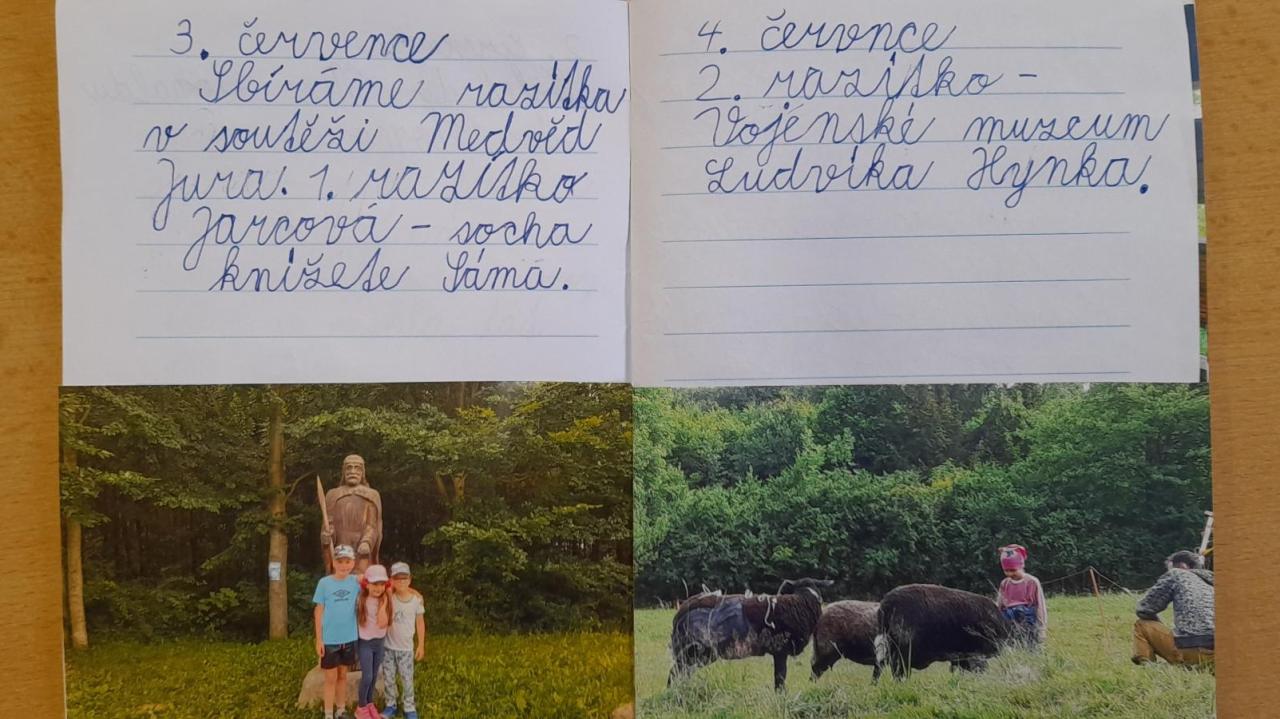 3. července
Sbíráme razítka
v soutěži Medvěd
Jura. 1. razítko
Jarcová - socha
knížete Sáma.
4. červnce
2. razítko -
Vojenské muzeum
Ludvíka Hynka.